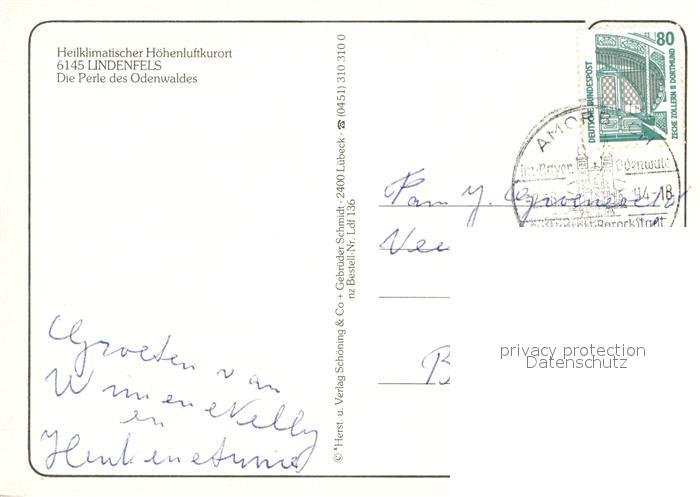 Heilklimatischer Höhenluftkurort
6145 LINDENFELS
Die Perle des Odenwaldes
© Herst. u. Verlag Schöning & Co + Gebrüder Schmidt · 2400 Lübeck · ☎ (0451) 310 310 0
nz Bestell-Nr. Ldf 136
80
DEUTSCHE BUNDESPOST
ZECHE ZOLLERN II DORTMUND
AMORB CH
im Bayer. Odenwald
94-18
Barockstadt
Fam J.
Vee
B
privacy protection
Datenschutz
Groeten van
Wim en Nelly
en
Henk en Annie